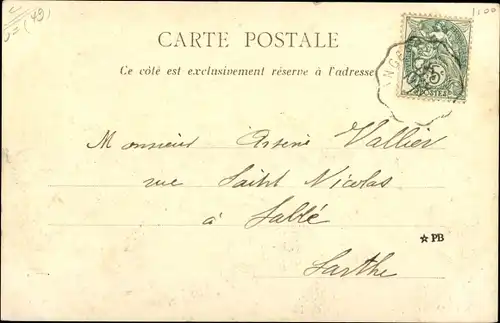 (49)
1500
CARTE POSTALE
Ce côté est exclusivement réservé à l'adresse
5c
POSTES
Monsieur Arsène Vallier
rue Saint Nicolas
à Sablé
★ PB
Sarthe